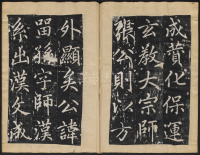 成贊化保運
玄教大宗師
張公則以方
外顯矣公諱
留孫字師漢
系出漢文成